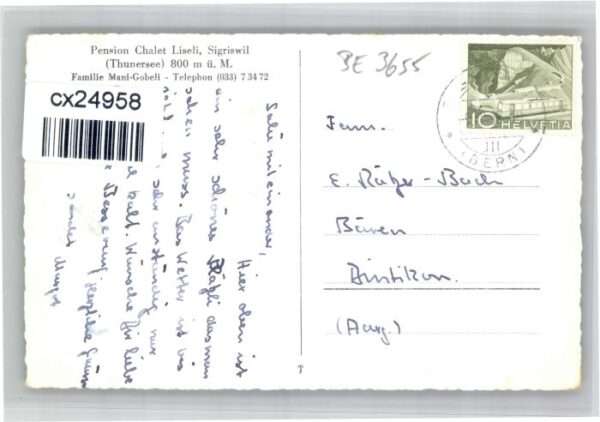 Pension Chalet Liseli, Sigriswil
(Thunersee) 800 m ü. M.
Familie Mani-Gobeli - Telephon (033) 7 34 72
cx24958
BE 3655
10 HELVETIA
III
(BERN)
Fam.
E. Rätzer-Bach
Bären
Dintikon.
(Aarg.)
Salü miteinander,
Hier oben ist
ein sehr schönes Plätzli das man
sehen muss. Das Wetter ist bis
sehr anständig nur
kalt. Wünsche Dir liebe
Besserung. Herzliche Grüsse
sendet